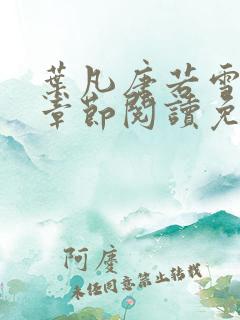 葉凡唐若雪
章節閱讀免
阿慶
未经同意禁止转载